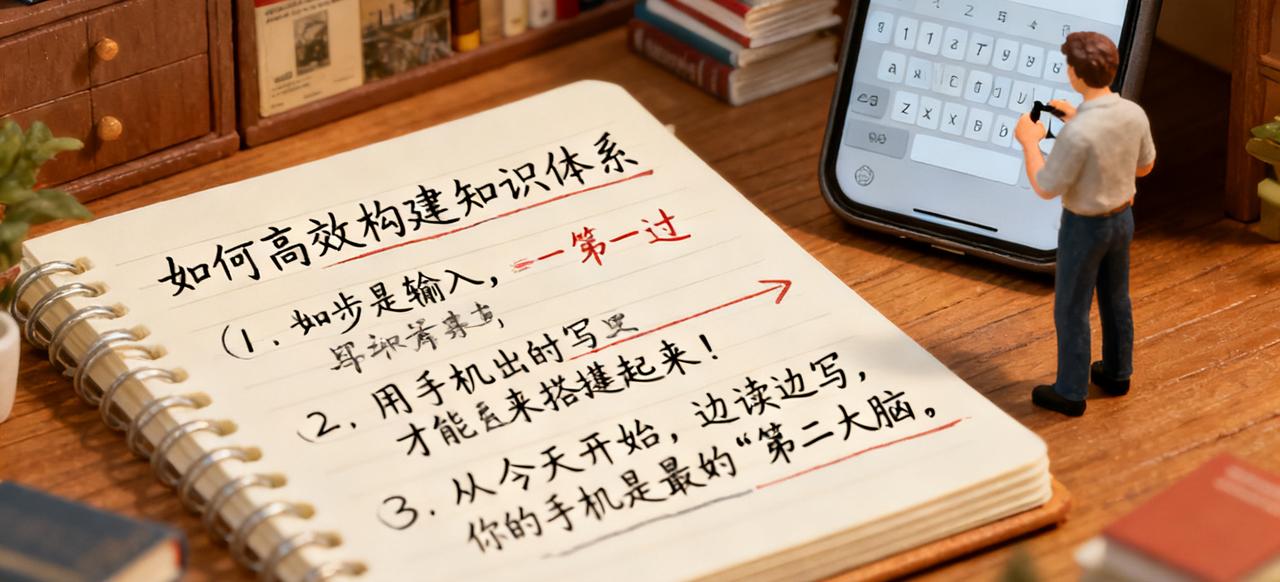 如何高效构建知识体系
(1. 如步是输入, 一第一过
2. 用手机出的写
才能来搭建起来!
3. 从今天开始,边读边写,
你的手机是最的“第二大脑。